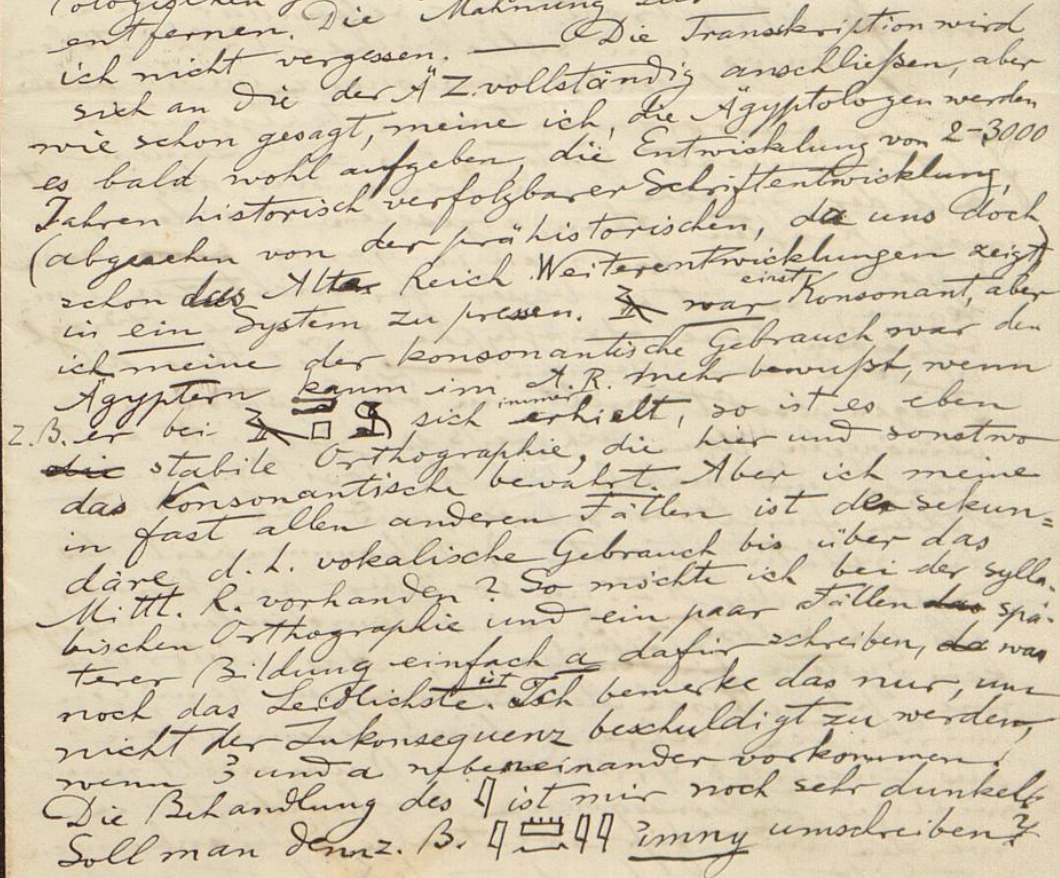 entfernen. Die Mahnung
ich nicht vergessen. — Die Transskription wird
sich an die der ÄZ vollständig anschließen, aber
wie schon gesagt, meine ich, die Ägyptologen werden
es bald wohl aufgeben, die Entwickelung von 2-3000
Jahren historisch verfolgbarer Schriftentwicklung,
(abgesehen von der prähistorischen, da uns doch
schon das Alte Reich Weiterentwicklungen zeigt)
in ein System zu pressen. 𓄿 war einst Konsonant, aber
ich meine der konsonantische Gebrauch war den
Ägyptern kaum im A. R. mehr bewußt, wenn
z. B. er bei 𓄿 sich immer erhielt, so ist es eben
die stabile Orthographie, die hier und sonstwo
das Konsonantische bewahrt. Aber ich meine
in fast allen anderen Fällen ist der sekun=
däre, d. h. vokalische Gebrauch bis über das
Mittl. R. vorhanden? So möchte ich bei der sylla-
bischen Orthographie und ein paar Fällen das spä-
terer Bildung einfach a dafür schreiben, da was
noch das Leidlichste ist. Ich bemerke das nur, um
nicht der Inkonsequenz beschuldigt zu werden,
wenn ꜣ und a nebeneinander vorkommen.
Die Behandlung des 𓇋 ist mir noch sehr dunkel.
Soll man denn z. B. 𓇋𓏠𓈖𓇋𓇋 imny umschreiben?